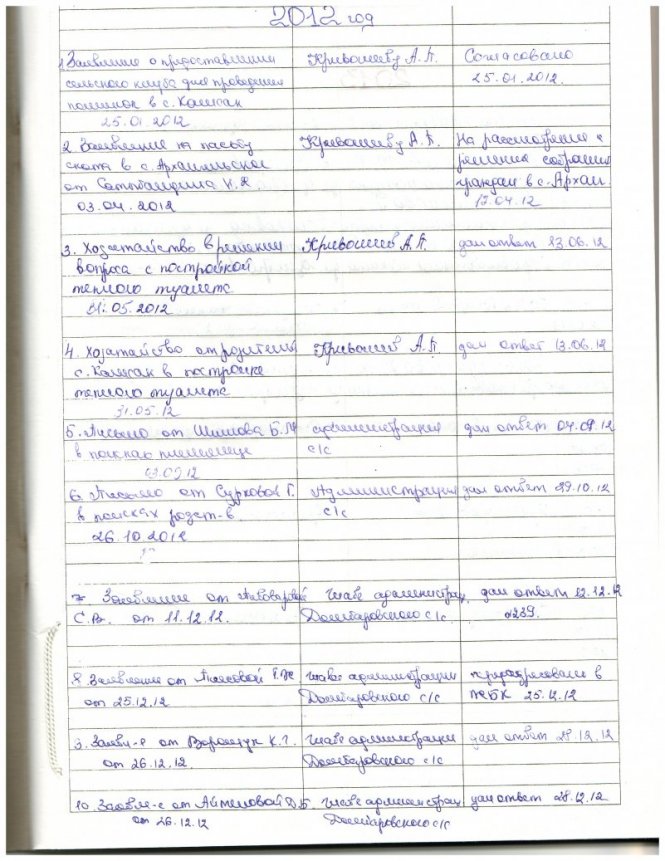 2012 год
1. Заявление о предоставлении
сельского клуба для проведения
поминок в с.
25.01.2012
Кривошееву А.П.
Согласовано
25.01.2012.
2. Заявление на пастьбу
скота в с.
от К.
03.04.2012
Кривошееву А.П.
На рассмотрение и
решение собрания
граждан в с. Архан.
12.04.12
3. Хозятайство в решении
вопроса с постройкой
теплого туалета
31.05.2012
Кривошеев А.П.
дан ответ 23.06.12
4. Хозятайство от родителей
с. в постройке
теплого туалета
31.05.12
Кривошеев А.П.
дан ответ 13.06.12
5. Письмо от Б.М
в поисках
03.09.12
администрация
с/с
дан ответ 04.09.12
6. Письмо от Сурковой Г.
в поисках родст-в.
26.10.2012
Администрация
с/с
дан ответ 29.10.12
7. Заявление от
С.В. от 11.12.12.
Главе администрац.
Домбаровского с/с.
дан ответ 12.12.12
№239.
8. Заявление от
от 25.12.12
Главе администрации
Домбаровского с/с
переадресовано в
25.12.12
9. Заявл-е от К.Г.
от 26.12.12.
Главе администрации
Домбаровского с/с
дан ответ 28.12.12
10. Заявл-е от Д.Б.
от 26.12.12
Главе администрац
Домбаровского с/с
дан ответ 28.12.12